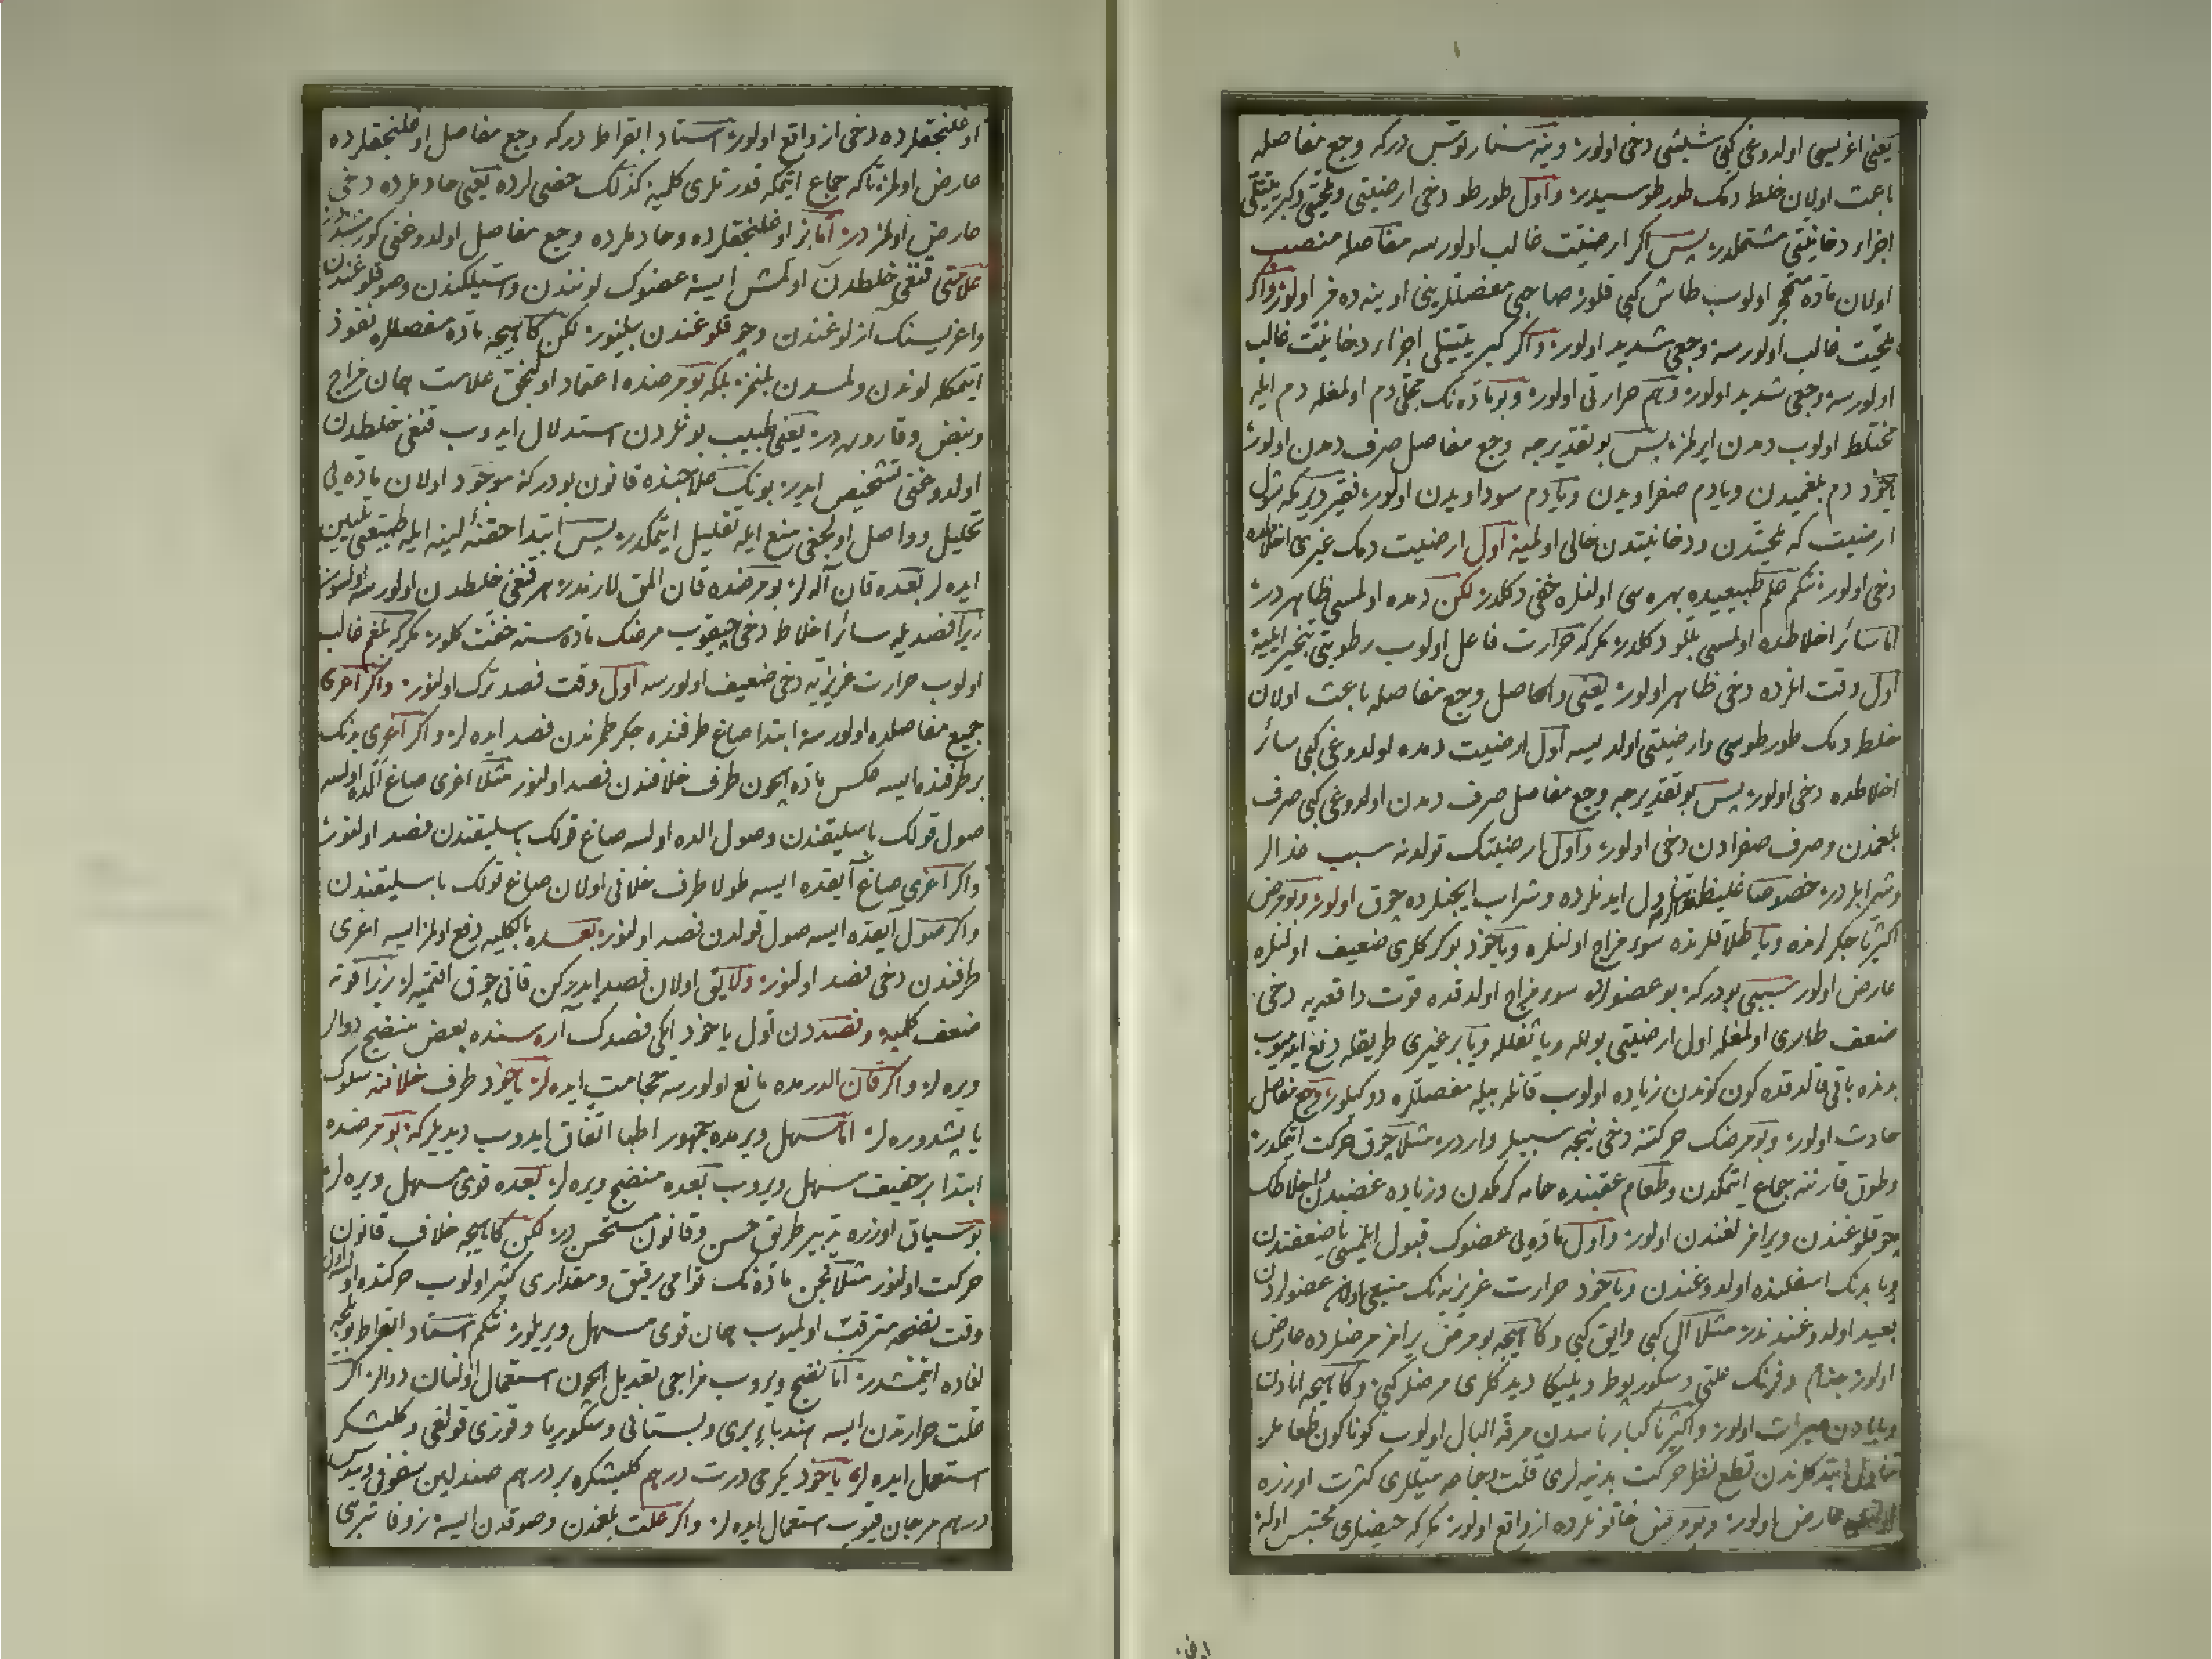 یعنی اغریسی اولدوغی کبی شیشی دخی اولور وینه سنارتوس درکه وجع مفاصله
باعث اولان خلط دمک طورطوسیدر واول طورطو دخی ارضیتی وملحیتی وکبریتیتلی
اجزاء دخانیتی مشتملدر پس اکر ارضیت غالب اولورسه مفاصله منصب
اولان ماده متحجر اولوب طاش کبی قلور صاحبی مفصللرینی اوینه ده فر اولور واکر
ملحیت غالب اولورسه وجعی شدید اولور واکر کبریتیتلی اجزاء دخانیت غالب
اولورسه وجعی شدید اولور وهم حرارتی اولور وبو ماده نک محلی دم اولمغله دم ایله
مختلط اولوب دمدن ایرلمز پس بو تقدیرجه وجع مفاصل صرف دمدن اولور
یاخود دم بلغمیدن ویا دم صفراویدن ویا دم سوداویدن اولور فقیر دیرکه شول
ارضیت که ملحیتدن ودخانیتدن خالی اولمیه اول ارضیت دمک غیری اخلاطده
دخی اولور نتکم علم طبیعیده بهره سی اولنلره خفی دکلدر لکن دمده اولمسی ظاهردر
اما سائر اخلاطده اولمسی بللو دکلدر مکرکه حرارت فاعل اولوب رطوبتی تبخیر ایلیه
اول وقت انلرده دخی ظاهر اولور یعنی والحاصل وجع مفاصله باعث اولان
خلط دمک طورطوسی وارضیتی اولدیسه اول ارضیت دمده اولدوغی کبی سائر
اخلاطده دخی اولور پس بو تقدیرجه وجع مفاصل صرف دمدن اولدوغی کبی صرف
بلغمدن وصرف صفرادن دخی اولور واول ارضیتک تولدنه سبب غذالر
وشرابلردر خصوصا غلیظ تناول ایدنلرده وشراب ایچنلرده چوق اولور وبو مرض
اکثریا جکرلرنده ویا طلاقلرنده سوء مزاج اولنلره ویاخود بوکرکلری ضعیف اولنلره
عارض اولور سببی بودرکه بو عضولرده سوء مزاج اولدقده قوت دافعه یه دخی
ضعف طاری اولمغله اول ارضیتی بولله ویا ثفلله ویا بر غیری طریقله دفع ایده میوب
بدنده باقی قالدقده کون کوندن زیاده اولوب قانله بیله مفصللره دوکیلور وجع مفاصل
حادث اولور وبو مرضک حرکتنه دخی نیجه سببلر واردر مثلا چوق حرکت ایتمکدر
وطوق قارننه جماع ایتمکدن وطعام عقبنده حمامه کرمکدن وزیاده غضبدن واخلاطک
چوقلوغندن ویرامزلغندن اولور واول ماده یی عضوک قبول ایلمسی یا ضعفندن
ویا بدنک اسفلنده اولدوغندن ویاخود حرارت غریزیه نک منبعی اولان عضولردن
بعید اولدوغندندر مثلا ال کبی وایاق کبی وکاهیجه بو مرض یرامز مرضلرده عارض
اولور جذام وفرنک علتی وسکوربوط وبلیقا دیدکلری مرضلر کبی وکاهیجه انادن
ویا بابادن میراث اولور واکثریا کبار ناسدن مرفه البال اولوب کوناکون طعاملر
تناول ایتدکلرندن قطع نظر حرکت بدنیه لری قلت وجماعه میللری کثرت اوزره
عارض اولور وبو مرض خاتونلرده از واقع اولور مکرکه حیضلری محتبس اوله
اوغلنجقلرده دخی از واقع اولور استاد ابقراط درکه وجع مفاصل اوغلنجقلرده
عارض اولمز تاکه جماع ایتمکه قدرتلری کلمیه کذلک خصیلرده یعنی خادملرده دخی
عارض اولمز در اما بز اوغلنجقلرده وخادملرده وجع مفاصل اولدوغنی کورمشزدر
علامتی قنغی خلطدن اولمش ایسه عضوک لونندن واسیلکندن وصوقلوغندن
واغریسنک ازلوغندن وچوقلوغندن بیلنور لکن کاهیجه ماده مفصللره نفوذ
ایتمکله لوندن ولمسدن بلنمز بلکه بو مرضده اعتماد اولنجق علامت همان مزاج
ونبض وقاروره در یعنی طبیب بونلردن استدلال ایدوب قنغی خلطدن
اولدوغنی تشخیص ایدر بونک علاجنده قانون بودرکه موجود اولان ماده یی
تحلیل وواصل اولجغی منع ایله تقلیل ایتمکدر پس ابتدا حقنه لینه ایله طبیعتی تلیین
ایده لر بعده قان اله لر بو مرضده قان المق لازمدر هر قنغی خلطدن اولورسه اولسون
زیرا فصد یله سائر اخلاط دخی چیقوب مرضک ماده سنه خفت کلور مکرکه بلغم غالب
اولوب حرارت غریزیه دخی ضعیف اولورسه اول وقت فصد ترک اولنور واکر اغری
جمیع مفاصلده اولورسه ابتدا صاغ طرفنده جکر طمرندن فصد ایده لر واکر اغری بدنک
بر طرفنده ایسه عکس ماده ایچون طرف خلافندن فصد اولنور مثلا اغری صاغ الده اولسه
صول قولک باسلیقندن وصول الده اولسه صاغ قولک باسلیقندن فصد اولنور
واکر اغری صاغ ایقده ایسه طولا طرف خلافی اولان صاغ قولک باسلیقندن
واکر صول ایقده ایسه صول قولدن فصد اولنور بعده بالکلیه دفع اولمز ایسه اغری
طرفندن دخی فصد اولنور ولایق اولان فصد ایدرکن قانی چوق اقتمیه لر زیرا قوته
ضعف کلمیه وفصددن اول یاخود ایکی فصدک اره سنده بعض منضج دوالر
ویره لر واکر قان الدرمده مانع اولورسه حجامت ایده لر یاخود طرف خلافنه سلوک
یاپشدوره لر اما مسهل ویرمده جمهور اطبا اتفاق ایدوب دیدیلرکه بو مرضده
ابتدا بر خفیف مسهل ویروب بعده منضج ویره لر بعده قوی مسهل ویره لر
بو سیاق اوزره تدبیر طریق حسن وقانون مستحسندر لکن کاهیجه خلاف قانون
حرکت اولنور مثلا قچن ماده نک قوامی رقیق ومقداری کثیر اولوب حرکتده اولورسه اول
وقت نضجه مترقب اولمیوب همان قوی مسهل ویریلور نتکم استاد ابقراط بویله
افاده ایتمشدر اما نضج ویروب مزاجی تعدیل ایچون استعمال اولنان دوالر اکر
علت حرارتدن ایسه هندباء بری وبستانی وسقوریا وقوزی قولاغی وکلشکر
استعمال ایده لر یاخود یکرمی درت درهم کلبشکره بر درهم صندلین سفوفی ویدی
درهم مرجان قویوب استعمال ایده لر واکر علت بلغمدن وصوقدن ایسه زوفا شربتی